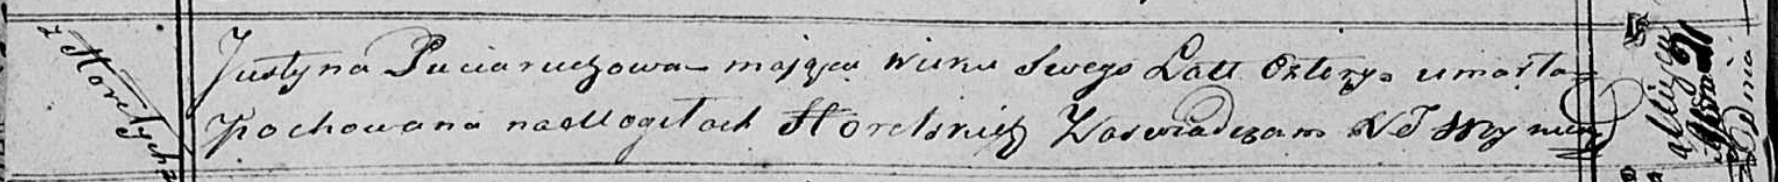 z Horelych
Justyna Puciaruczowa mająca wieku Swego Latt Cztery umarła
Pochowana na Mogiłach Horelskich Zaświadczam
Dnia